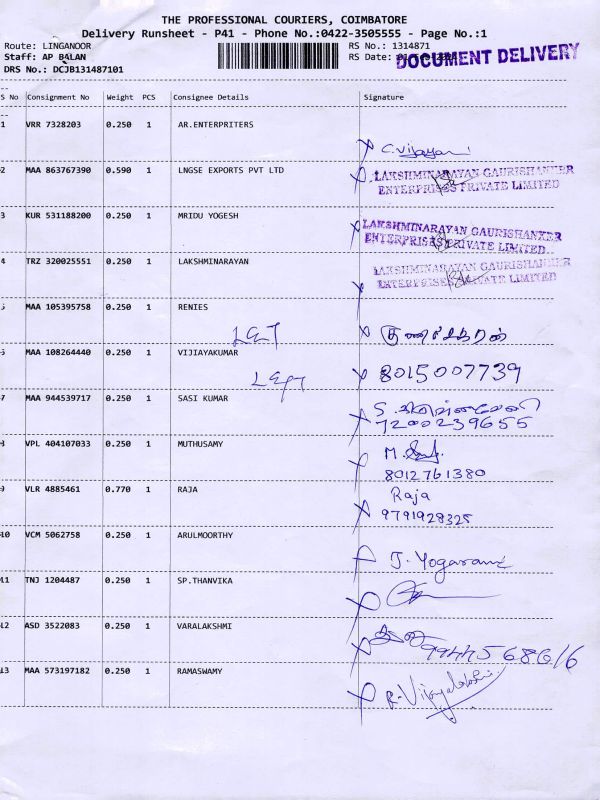 THE PROFESSIONAL COURIERS, COIMBATORE
Delivery Runsheet - P41 - Phone No.:0422-3505555 - Page No.:1
Route: LINGANOOR RS No.: 1314871
Staff: AP BALAN RS Date: DOCUMENT DELIVERY
DRS No.: DCJB131487101
S No Consignment No Weight PCS Consignee Details Signature
1 VRR 7328203 0.250 1 AR.ENTERPRITERS
C.Vijayan
2 MAA 863767390 0.590 1 LNGSE EXPORTS PVT LTD LAKSHMINARAYAN GAURISHANKER
ENTERPRISES PRIVATE LIMITED
3 KUR 531188200 0.250 1 MRIDU YOGESH LAKSHMINARAYAN GAURISHANKER
ENTERPRISES PRIVATE LIMITED
4 TRZ 320025551 0.250 1 LAKSHMINARAYAN LAKSHMINARAYAN GAURISHANKER
ENTERPRISES PRIVATE LIMITED
5 MAA 105395758 0.250 1 RENIES
6 MAA 108264440 0.250 1 VIJIAYAKUMAR 8015007739
7 MAA 944539717 0.250 1 SASI KUMAR
7200239655
8 VPL 404107033 0.250 1 MUTHUSAMY M.
8012761380
9 VLR 4885461 0.770 1 RAJA Raja
9791928325
10 VCM 5062758 0.250 1 ARULMOORTHY
J. Yogarani
11 TNJ 1204487 0.250 1 SP.THANVIKA
12 ASD 3522083 0.250 1 VARALAKSHMI
9944568616
13 MAA 573197182 0.250 1 RAMASWAMY
R. Vijayalakshmi